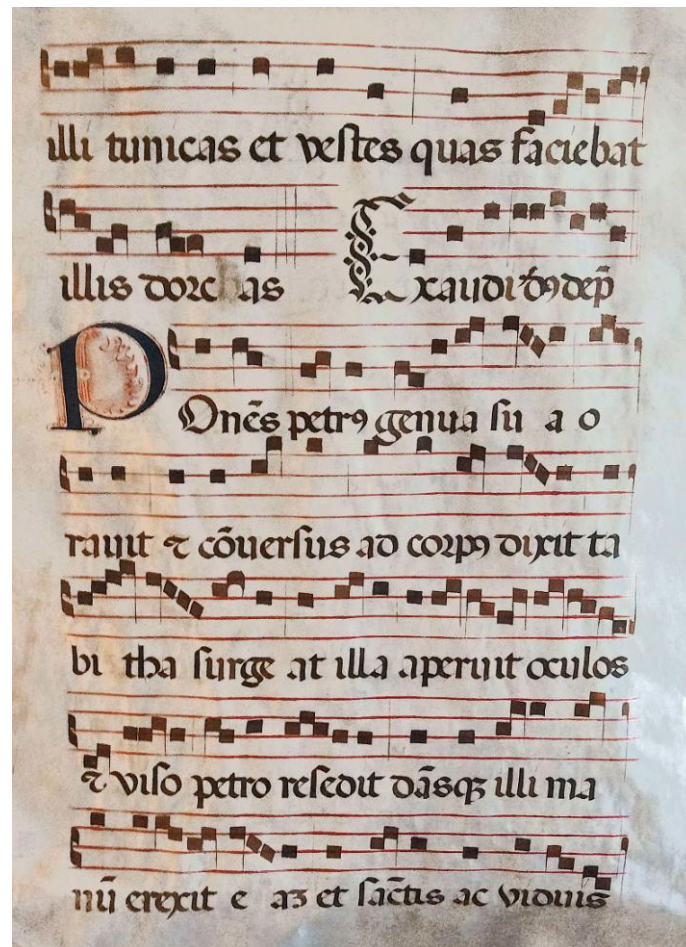 illi tunicas et vestes quas faciebat
illis dorcas Exaudi dñs dep̄
POnēs petrꝰ genua su a o
ravit ⁊ cōversus ad corpꝰ dixit ta
bi tha surge at illa aperuit oculos
⁊ viso petro resedit dāsqꝫ illi ma
nū erexit e aꝫ et sāctis ac viduis